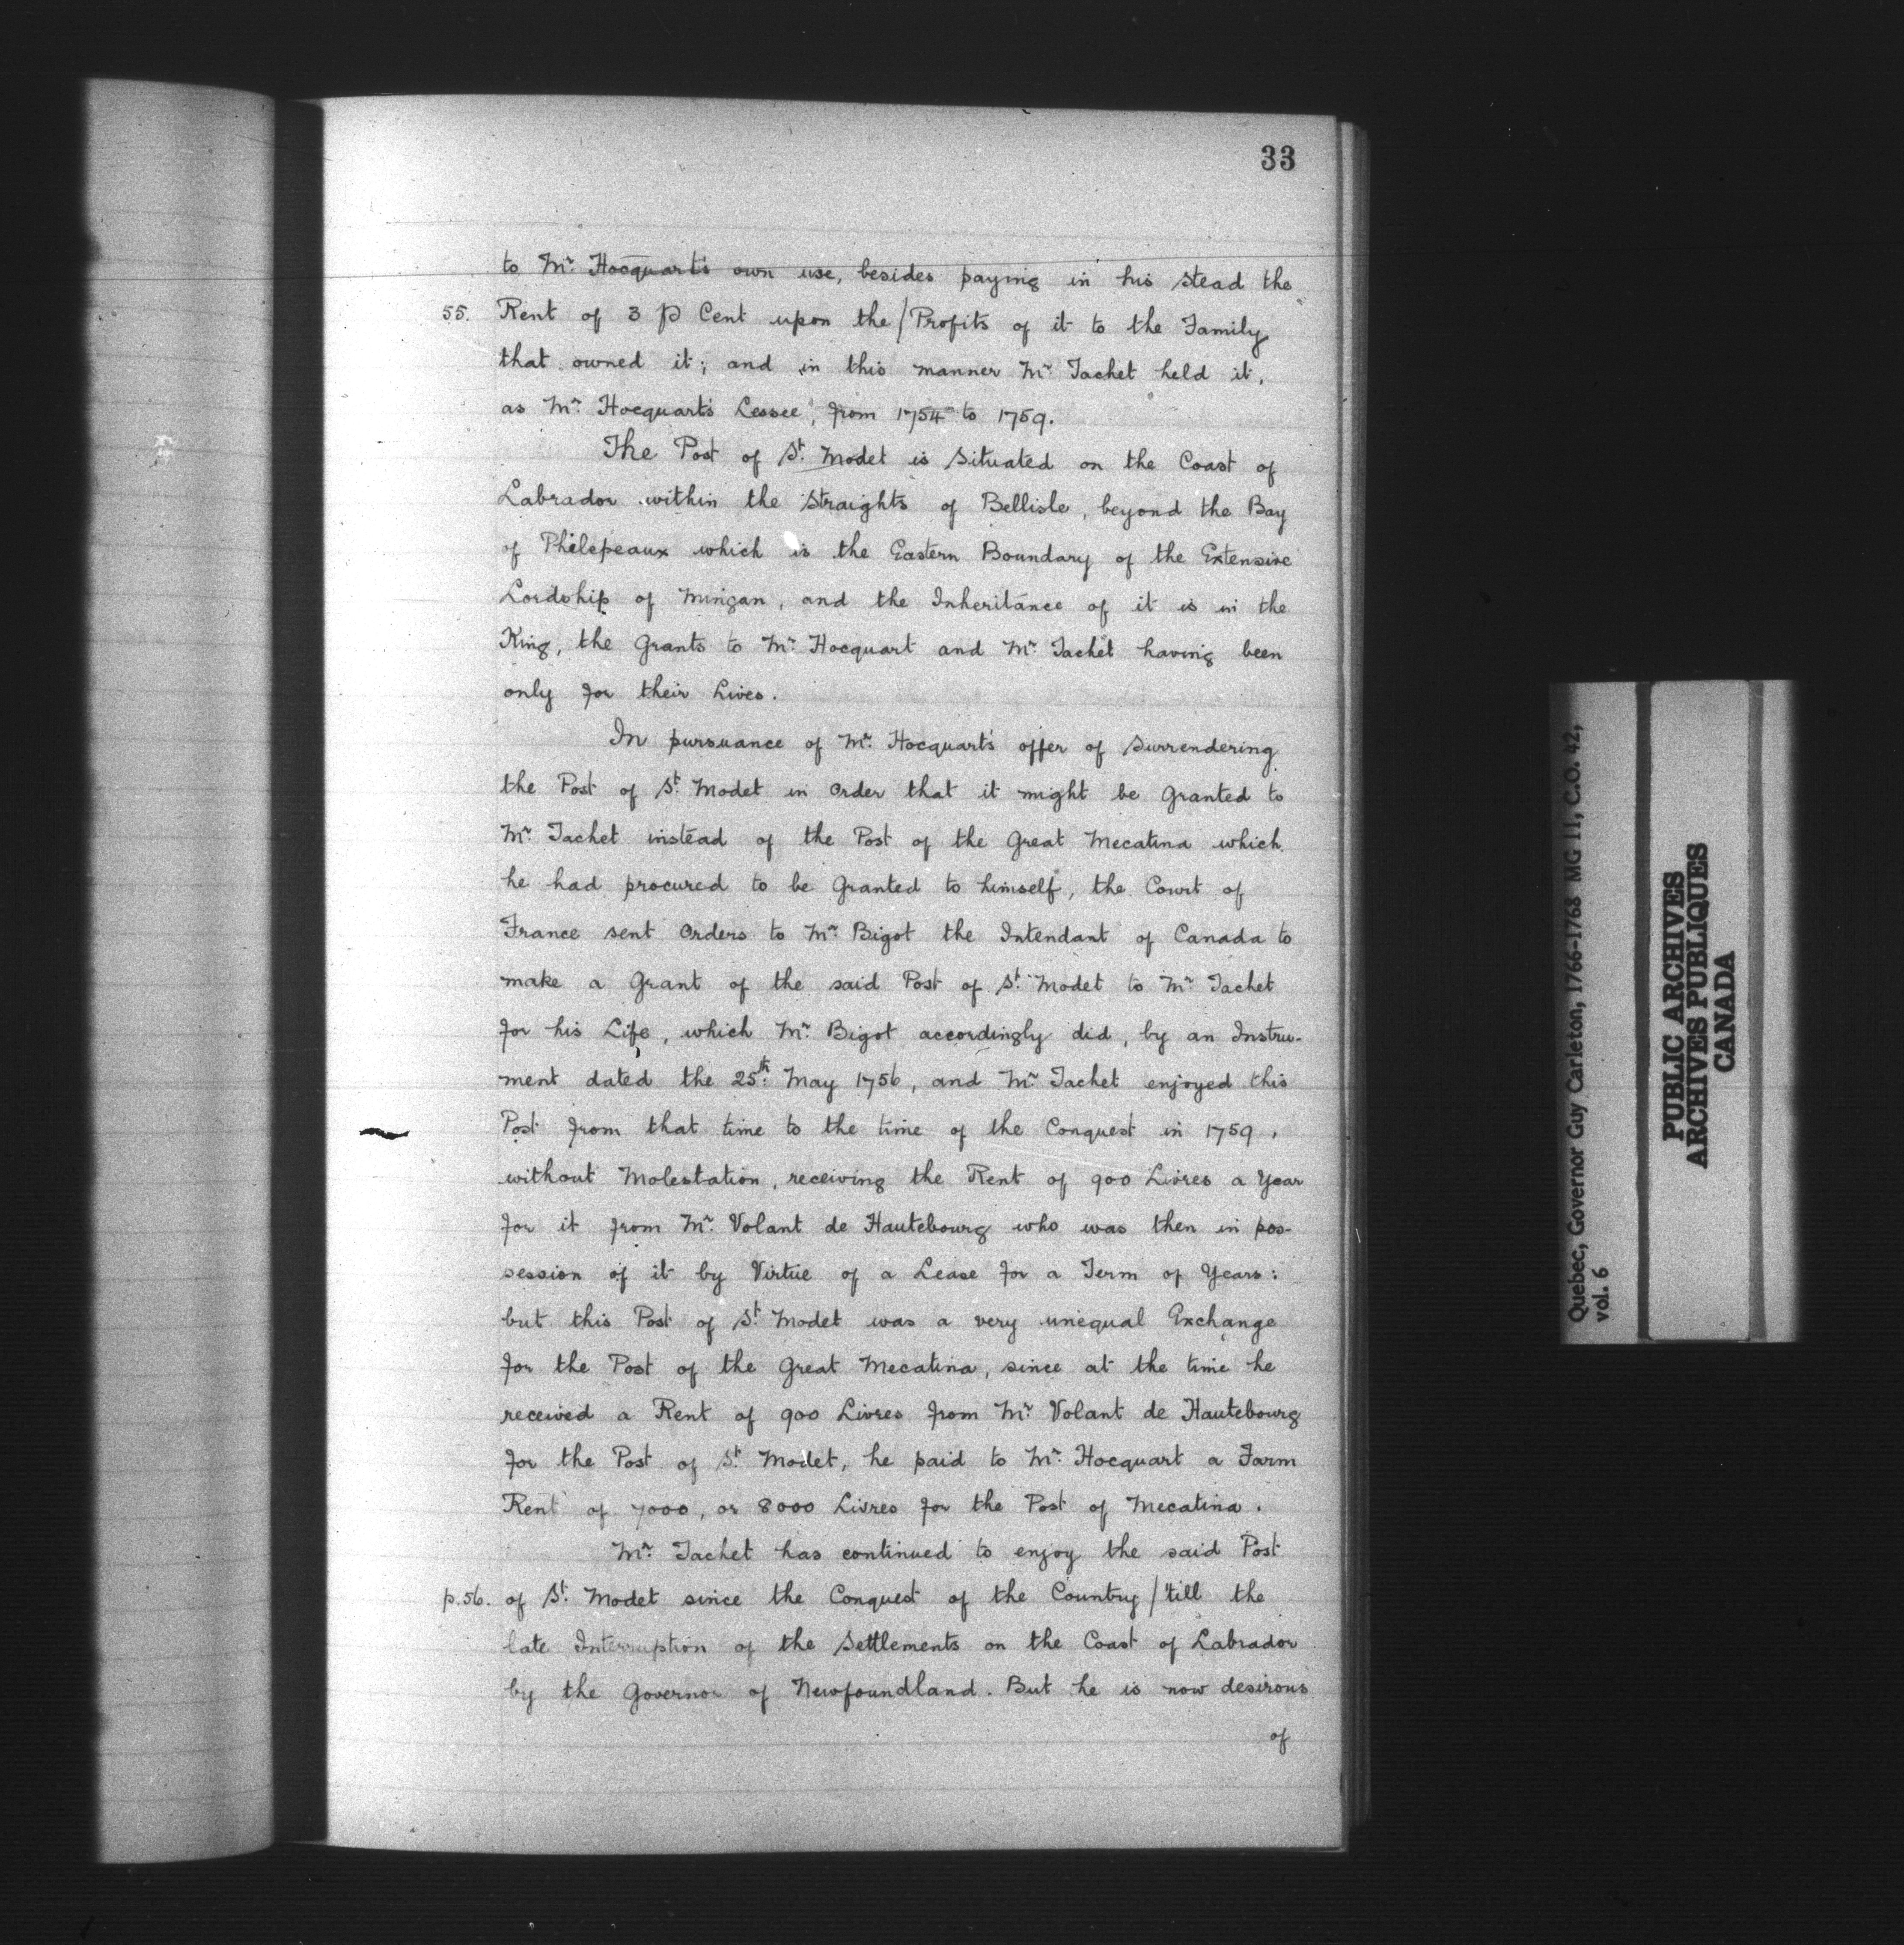 33
to Mr. Hocquart's own use, besides paying in his stead the
55. Rent of 3 p Cent upon the/Profits of it to the Family
that owned it; and in this manner Mr. Tachet held it,
as Mr. Hocquart's Lessee, from 1754 to 1759.
The Post of St. Modet is situated on the Coast of
Labrador within the Straights of Bellisle, beyond the Bay
of Phélépeaux which is the Eastern Boundary of the Extensive
Lordship of Mingan, and the Inheritance of it is in the
King, the Grants to Mr. Hocquart and Mr. Tachet having been
only for their Lives.
In pursuance of Mr. Hocquart's offer of surrendering
the Post of St. Modet in order that it might be granted to
Mr. Tachet instead of the Post of the Great Mecatina which
he had procured to be Granted to himself, the Court of
France sent Orders to Mr. Bigot the Intendant of Canada to
make a Grant of the said Post of St. Modet to Mr. Tachet
for his Life, which Mr. Bigot accordingly did, by an Instru-
ment dated the 25th. May 1756, and Mr. Tachet enjoyed this
Post from that time to the time of the Conquest in 1759,
without Molestation, receiving the Rent of 900 Livres a Year
for it from Mr. Volant de Hautebourg who was then in pos-
session of it by Virtue of a Lease for a Term of Years:
but this Post of St. Modet was a very unequal Exchange
for the Post of the Great Mecatina, since at the time he
received a Rent of 900 Livres from Mr. Volant de Hautebourg
for the Post of St. Modet, he paid to Mr. Hocquart a Farm
Rent of 7000, or 8000 Livres for the Post of Mecatina.
Mr. Tachet has continued to enjoy the said Post
p.56. of St. Modet since the Conquest of the Country/'till the
late Interruption of the Settlements on the Coast of Labrador
by the Governor of Newfoundland. But he is now desirous
of
Quebec, Governor Guy Carleton, 1766-1768 MG 11, C.O. 42,
vol. 6
PUBLIC ARCHIVES
ARCHIVES PUBLIQUES
CANADA